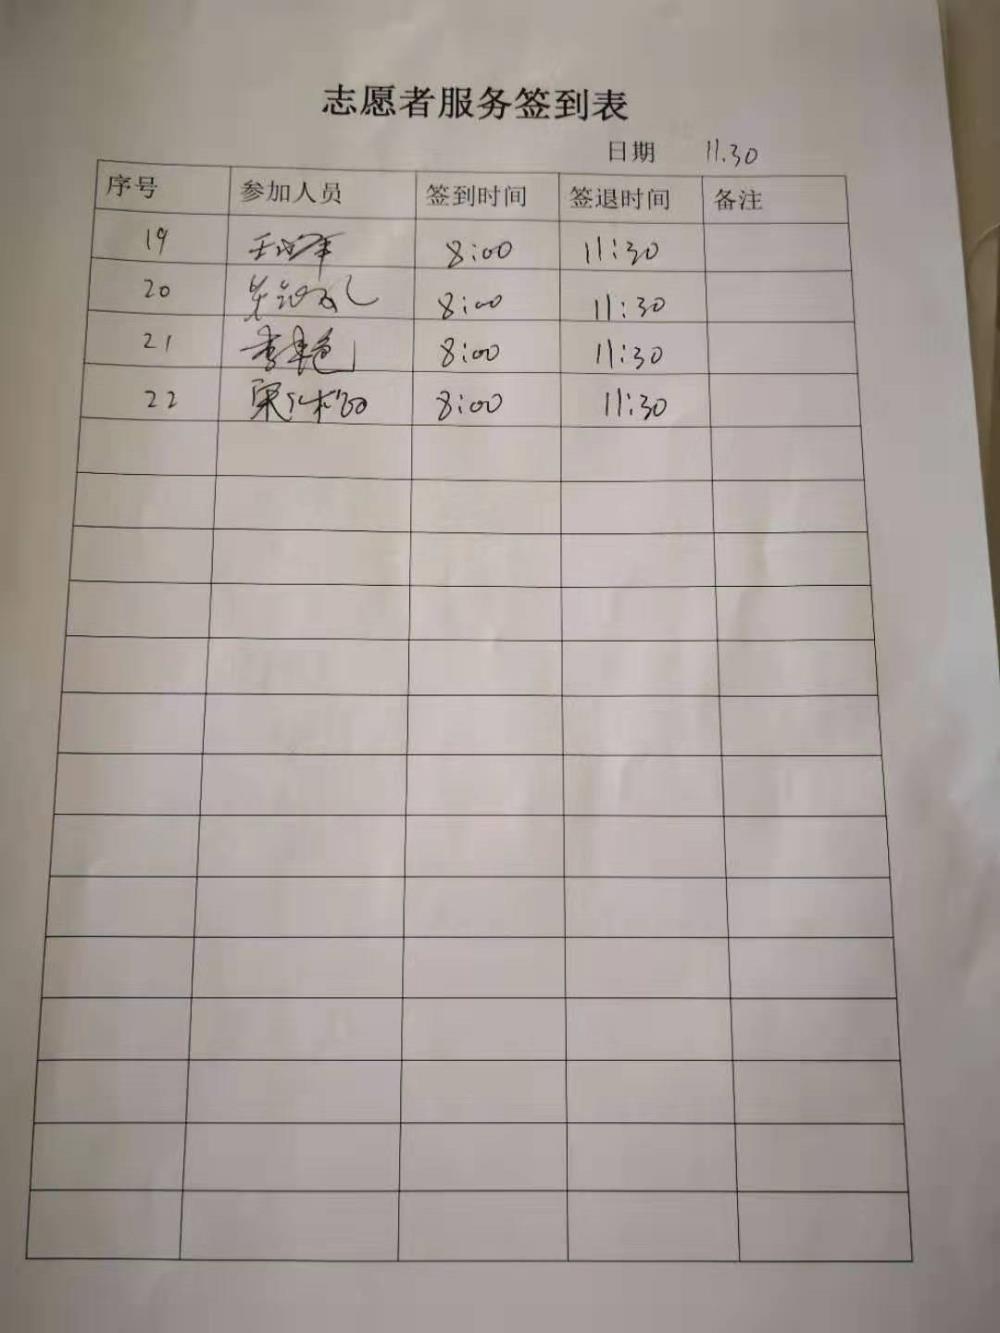 志愿者服务签到表
日期 11.30
序号 参加人员 签到时间 签退时间 备注
19 8:00 11:30
20 8:00 11:30
21 李艳 8:00 11:30
22 8:00 11:30